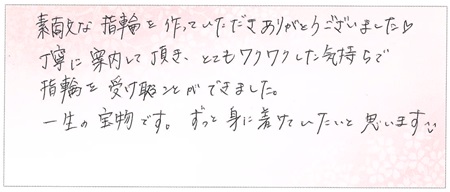 素敵な指輪を作っていただきありがとうございました♡
丁寧に案内して頂き、とてもワクワクした気持ちで
指輪を受け取ることができました。
一生の宝物です。ずっと身に着けていたいと思います